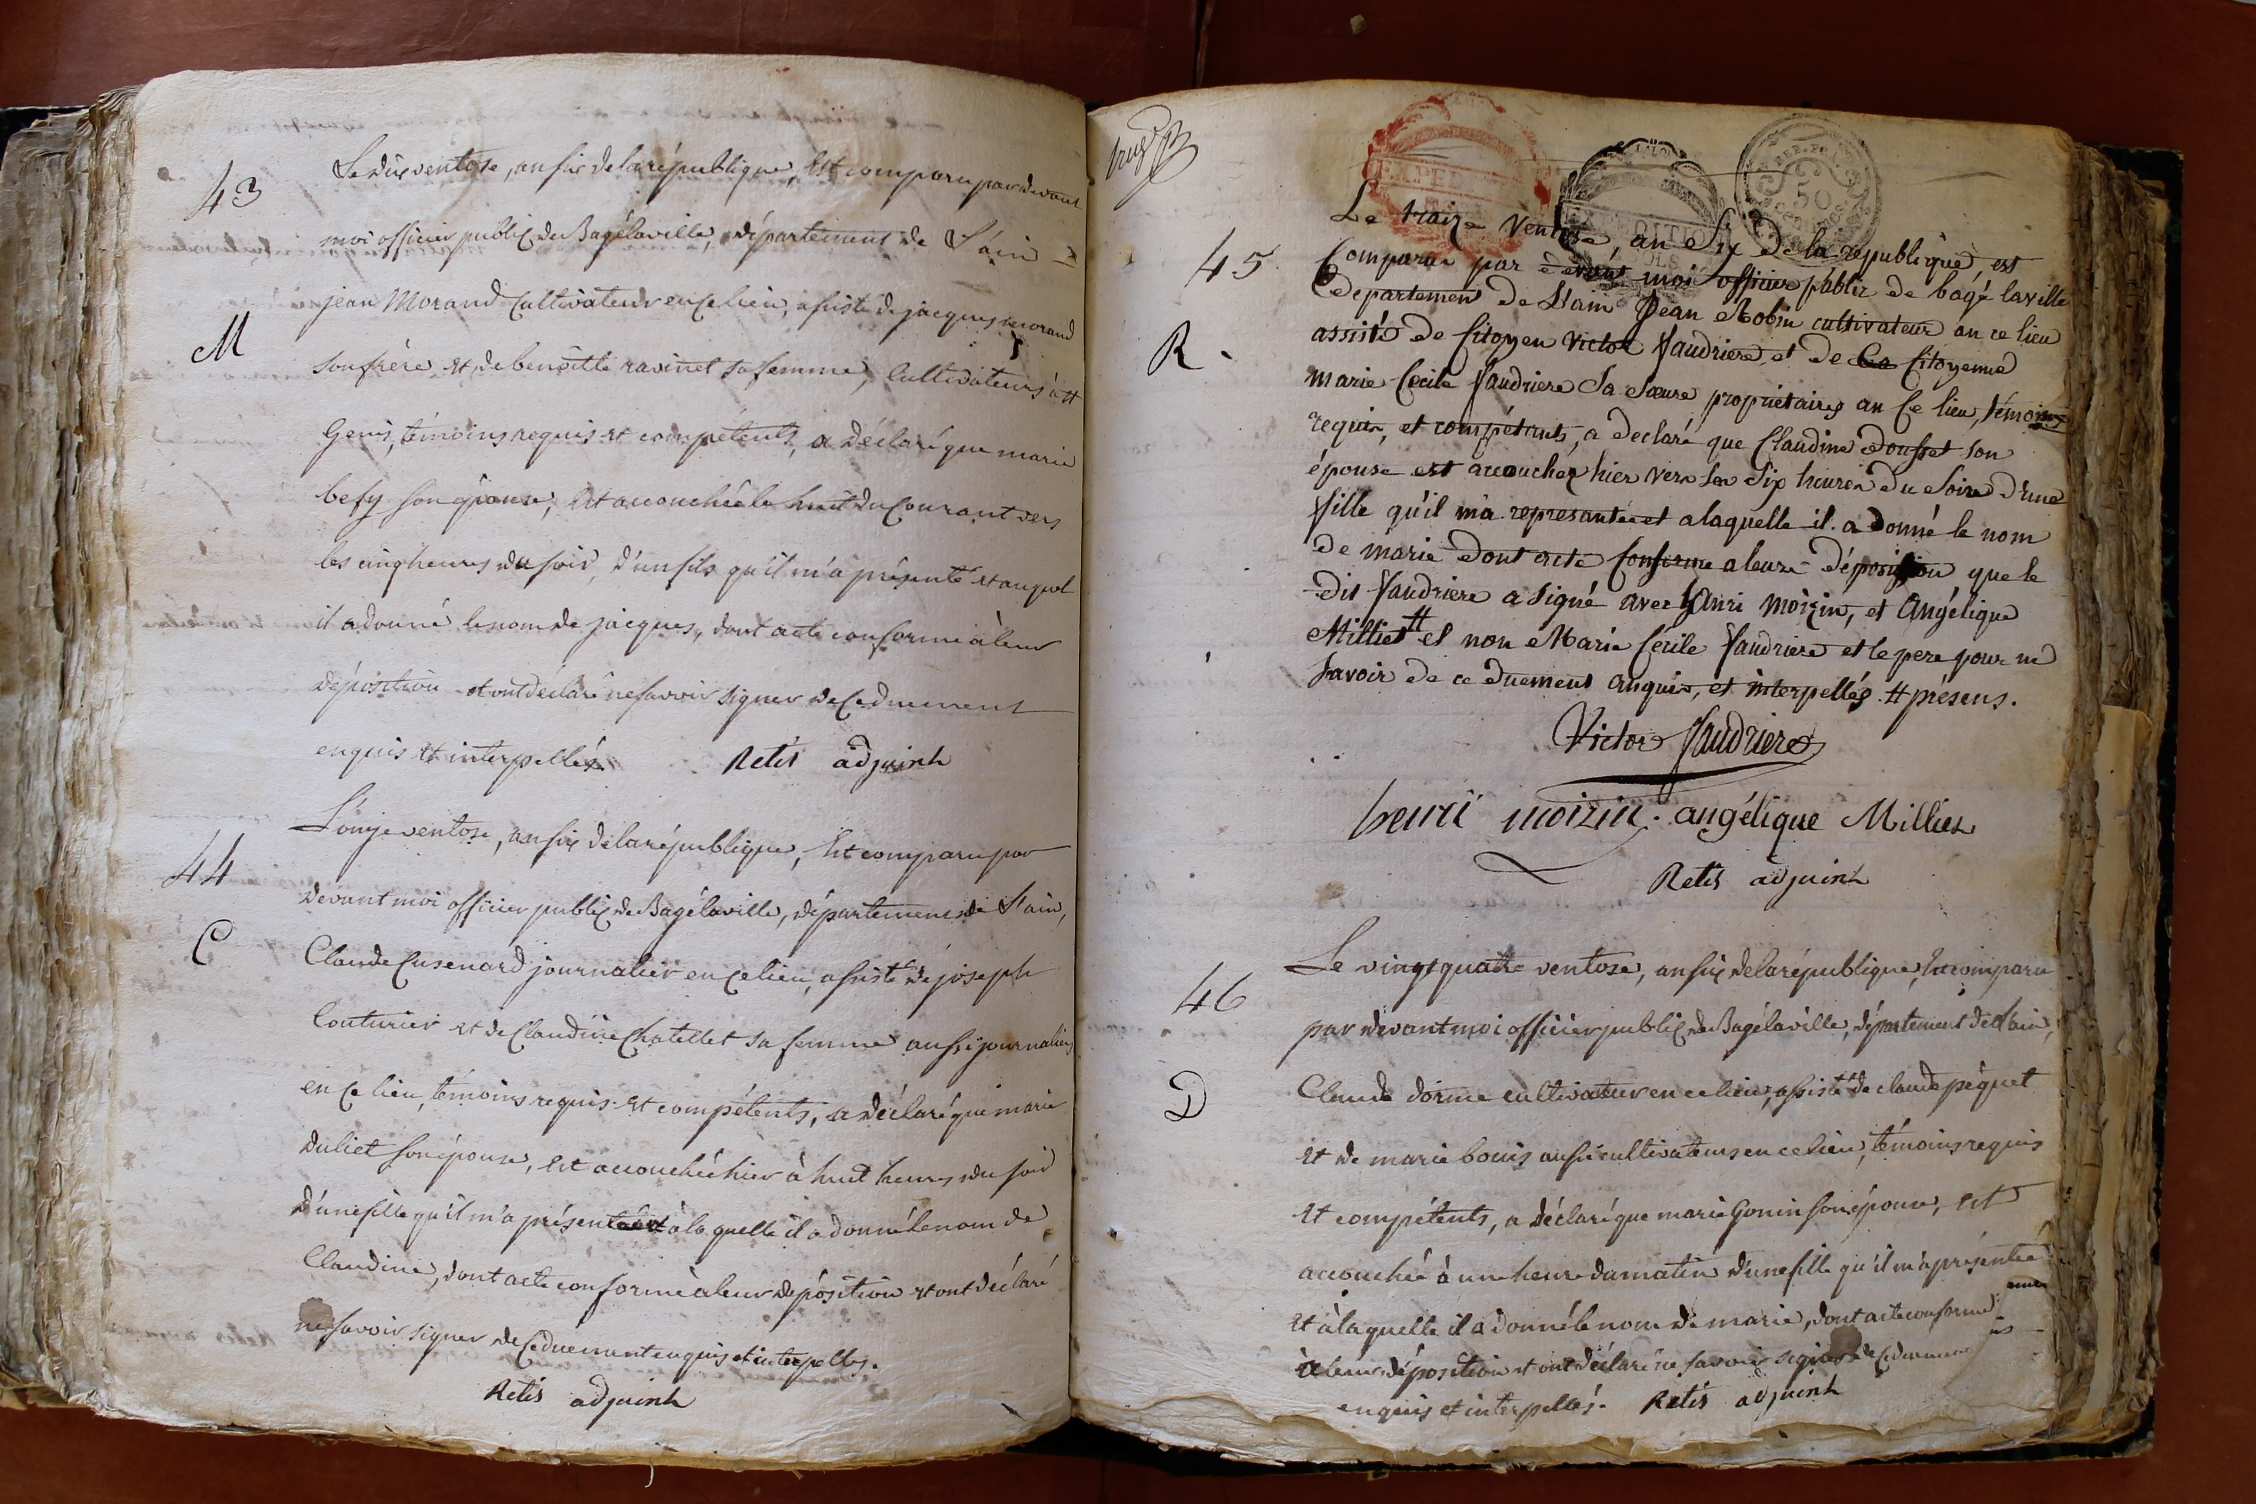 43
Le dix ventose, an six de la république, Est comparu par devant
moi officier public de Bagélaville, département de L'ain
jean Morand Cultivateur en Ce lieu, assisté de jacques morand
M
son frère et de benoitte ravinet sa femme, Cultivateurs à st
Genis, témoins requis et compétents, a déclaré que marie
besy son épouse, Est accouchée le huit du Courant vers
les cinq heures du soir, d'un fils qu'il m'a présenté et auquel
il a donné le nom de jacques, dont acte conforme à leur
déposition et ont déclaré ne savoir signer de Ce duement
enquis et interpellés. Retis adjoint
44
L'onze ventose, an six de la république, Est comparu par
devant moi officier public de Bagélaville, département de L'ain,
C
Claude Cusenard journalier en Ce lieu, assisté de joseph
Couturier et de Claudine Chatellet sa femme aussi journaliers
en Ce lieu, témoins requis et compétents, a déclaré que marie
Duliet son épouse, Est accouchée hier à huit heures du soir
d'une fille qu'il m'a présentée et à la quelle il a donné le nom de
Claudine, dont acte conforme à leur déposition et ont déclaré
ne savoir signer de Ce duement enquis et interpellés.
Retis adjoint
50
45
Le traize Ventose, an Six de la république, est
Comparu par devant moi officier public de bagé laville
departement de L'ain Jean Robin cultivateur an ce lieu
R
assisté de Citoyen Victor Vaudriere et de la Citoyenne
marie Cecile Vaudriere Sa Sœure propriétaires an Ce lieu, témoins
requis, et compétants, a declaré que Claudine dousset son
épouse est accouchéz hier vers les Six heures du Soire d'une
fille qu'il m'a represantée et a laquelle il a donné le nom
de marie dont acte Conforme a leure déposition que le
dit Vaudriere a signé avec hanri moizin, et Angélique
Milliet # et non Marie Cécile Vaudriere et le pere pour ne
Savoir de ce duement anquis, et interpellés. # présens.
Victor Vaudriere
henri moizin. angélique Milliet
Retis adjoint
46
Le vingt quatre ventose, an six de la république, Est comparu
par devant moi officier public de Bagélaville, département de L'ain,
D
Claude dorme cultivateur en ce lieu, assisté de claude péquet
et de marie bouis aussi cultivateurs en ce lieu, témoins requis
et compétents, a déclaré que marie Gonin son épouse, est
accouchée à une heure du matin d'une fille qu'il m'a présentée
et à laquelle il a donné le nom de marie, dont acte conforme
à leur déposition et ont déclaré ne savoir signer de Ce duement
enquis et interpellés. Retis adjoint